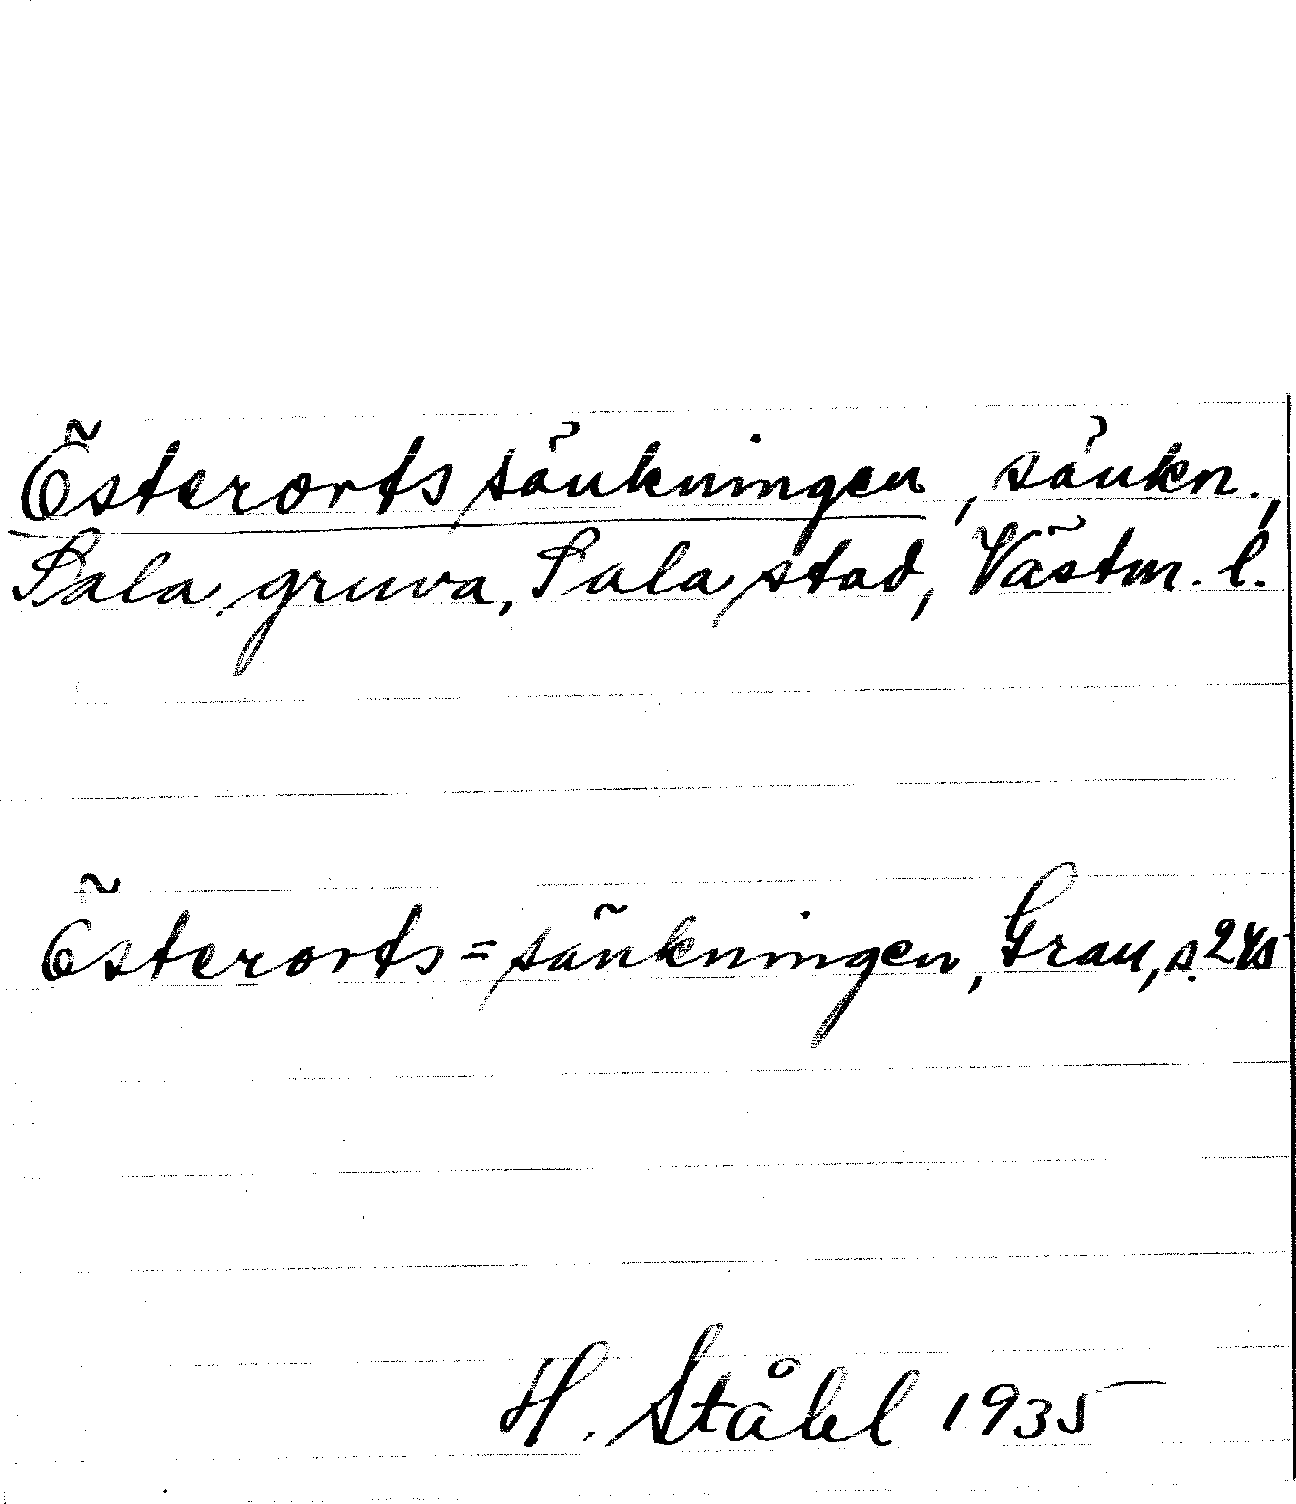 Österortssänkningen, sänkn.,
Sala gruva, Sala stad, Västm. l.
Österorts=sänkningen, Grau, s. 245
H. Ståhl 1935